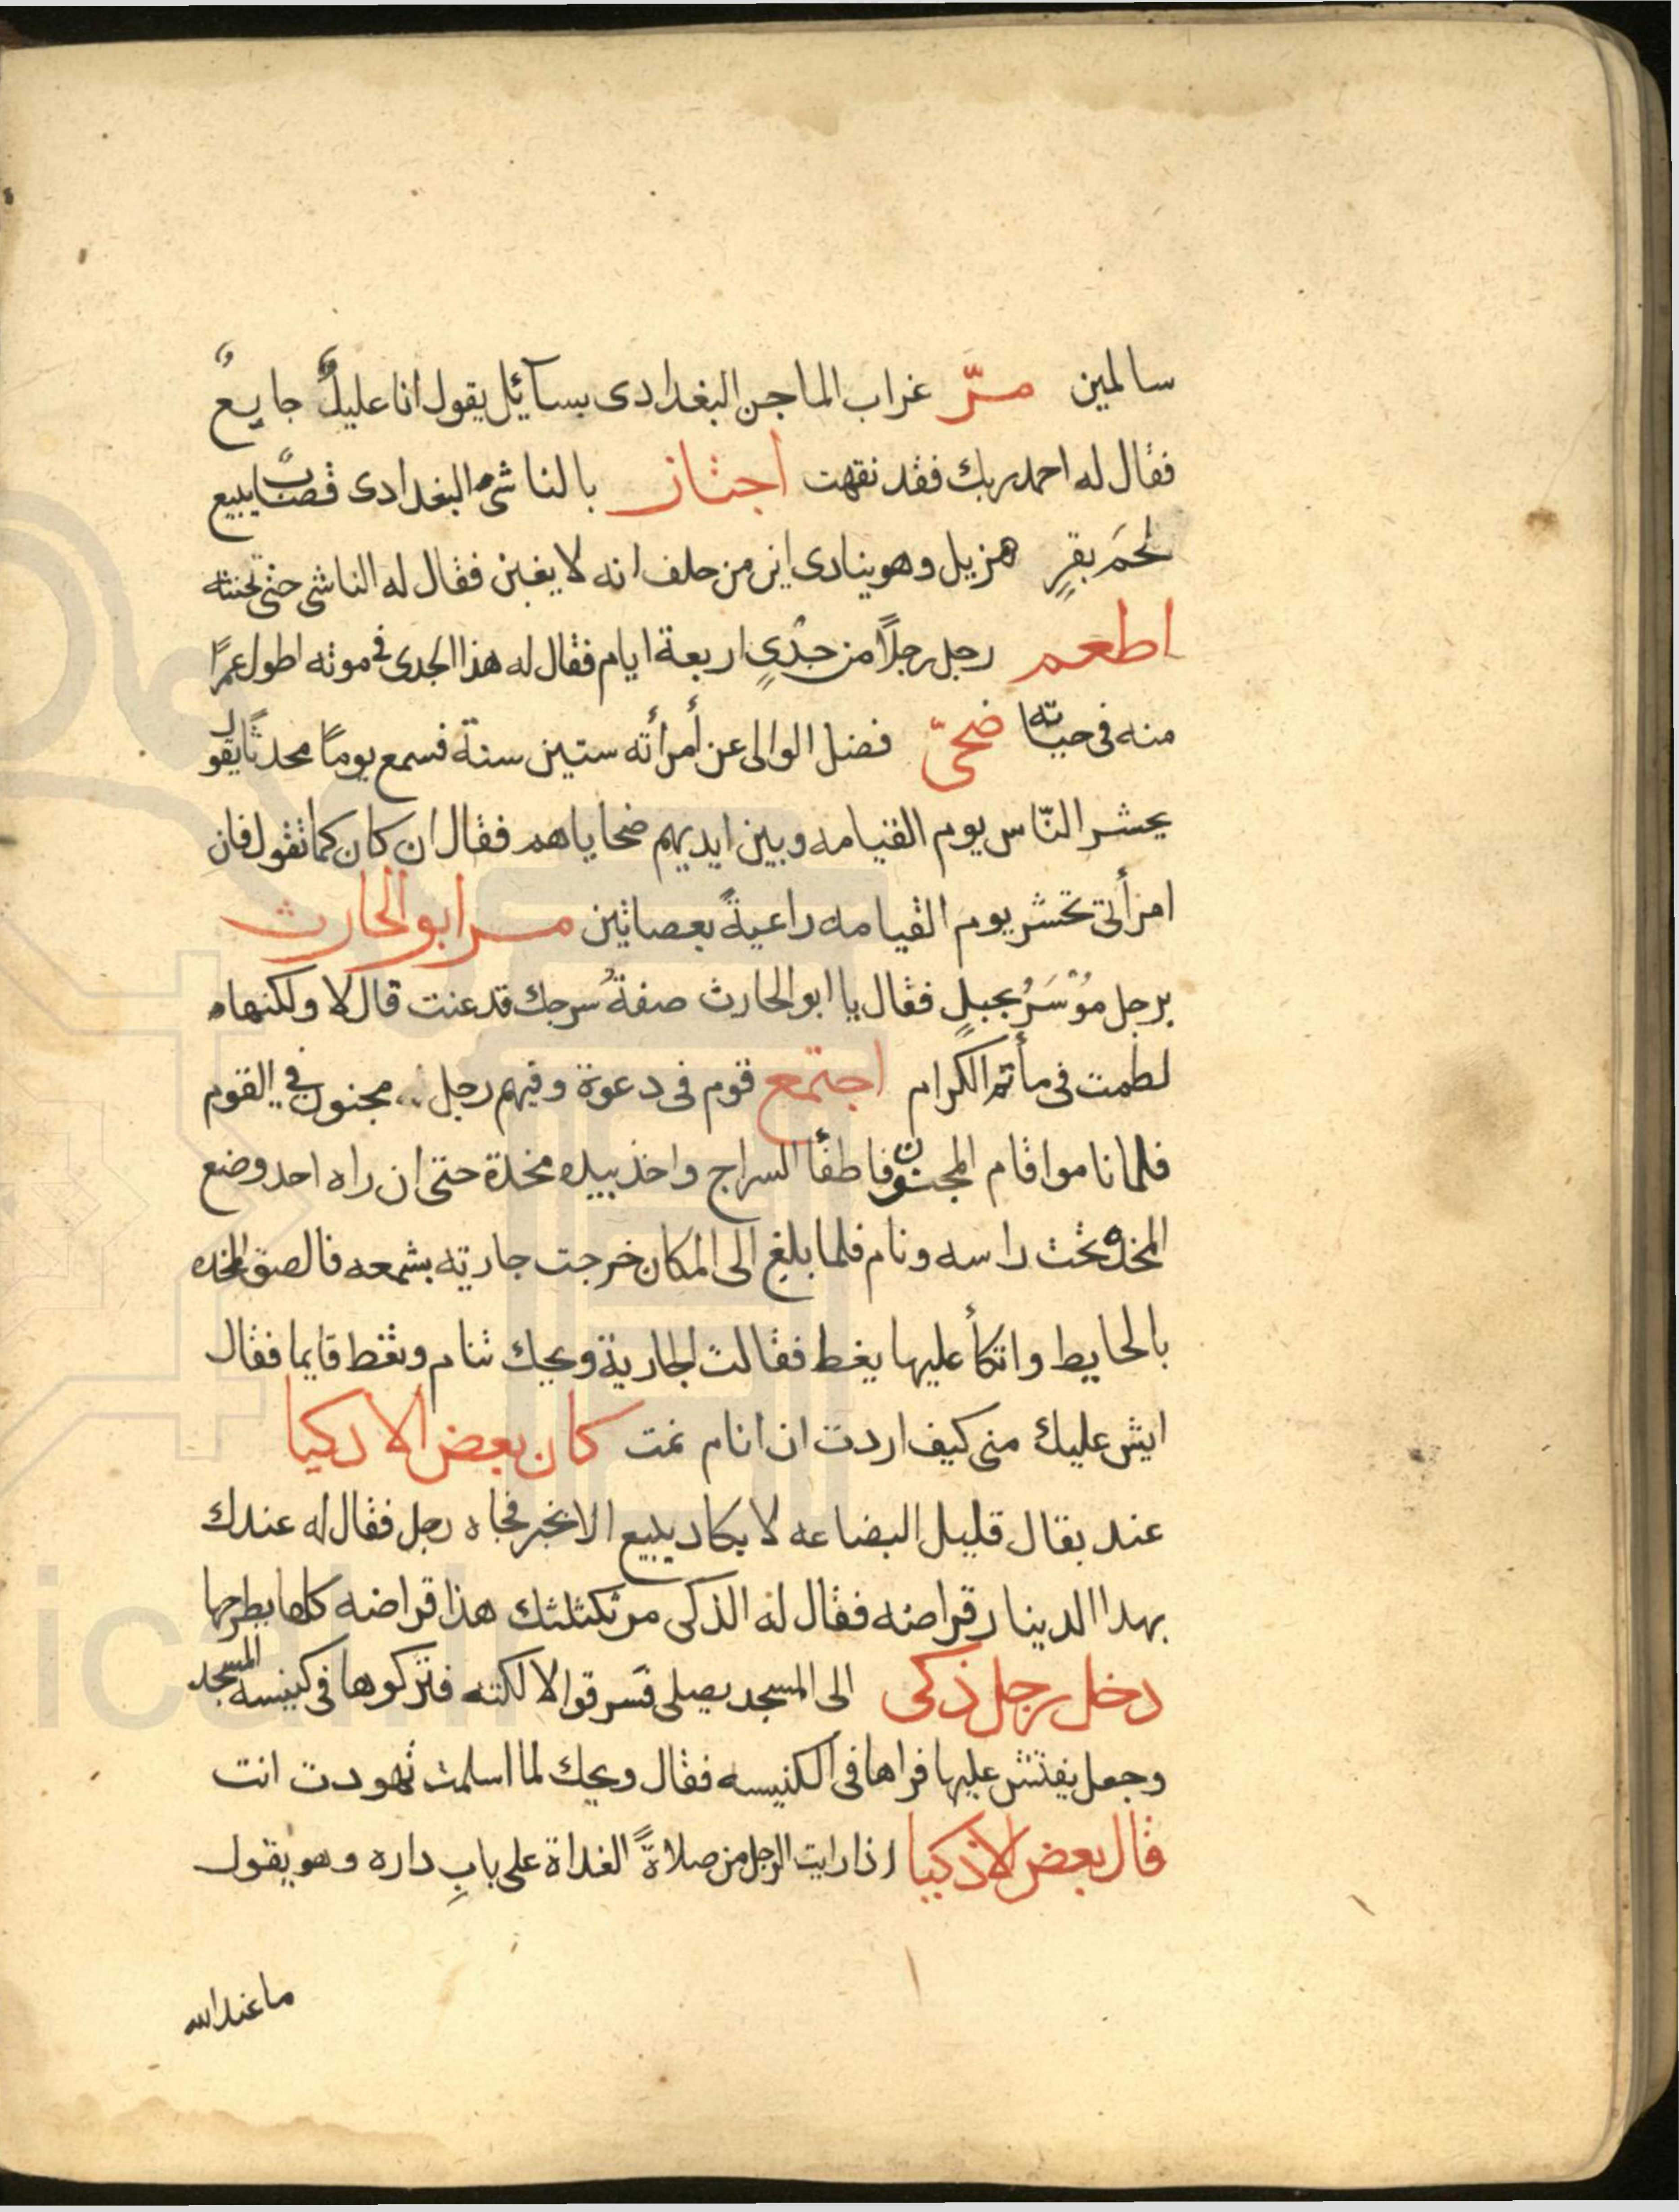 سالمين مرّ غراب الماجن البغدادى بسآئيل يقول انا عليلٌ جايعٌ
فقال له احمد ربك فقد نقهت اجتاز بالناشئ البغدادى قصّابٌ يبيع
لحمَ بقرٍ هزيل وهو ينادى اين من حلف انه لا يغبن فقال له الناشى حتى تحنثه
اطعم رجل رجلًا من جدْيٍ اربعة ايام فقال له هذا الجدى فى موته اطول عمرًا
منه فى حياته ضحىّ فضل الوالى عن أمرأته ستين سنة فسمع يومًا محدثًا يقول
يحشر النّاس يوم القيامه وبين ايديهم ضحاياهم فقال ان كان كما تقول فان
امرأتى تحشر يوم القيامه راعيةً بعصاتين مر ابو الحارث
برجل مؤسَرُ بجبلٍ فقال يا ابو الحارث صفةُ سرجك قد عنت قال لا ولكنها
لطمت فى مأتم الكرام اجتمع قوم فى دعوة وفيهم رجل مجنون فى القوم
فلما ناموا قام المجنون فاطفأ السراج واخذ بيده مخدة حتى ان راه احد وضع
المخده تحت راسه ونام فلما بلغ الى المكان خرجت جاريته بشمعه فالصق المخده
بالحايط واتكأ عليها يغط فقالت الجارية ويحك تنام وتغط قايما فقال
ايش عليك منى كيف اردت ان انام نمت كان بعض الادكيا
عند بقال قليل البضاعه لا يكاد يبيع الا بخبر فجاه رجل فقال له عندك
بهدا الدينار قراضه فقال له الذكى مر ثكلثك هذا قراضه كلها بطرحها
دخل رجل ذكى الى المسجد يصلى فسرقوا لالكته فتركوها فى كنيسه المسجد
وجعل يفتش عليها فراها فى الكنيسه فقال ويحك لما اسلمت تهودت انت
قال بعض الاذكيا اذا رايت الرجل من صلاةً الغداة على بابِ داره وهو يقول
ما عند الله